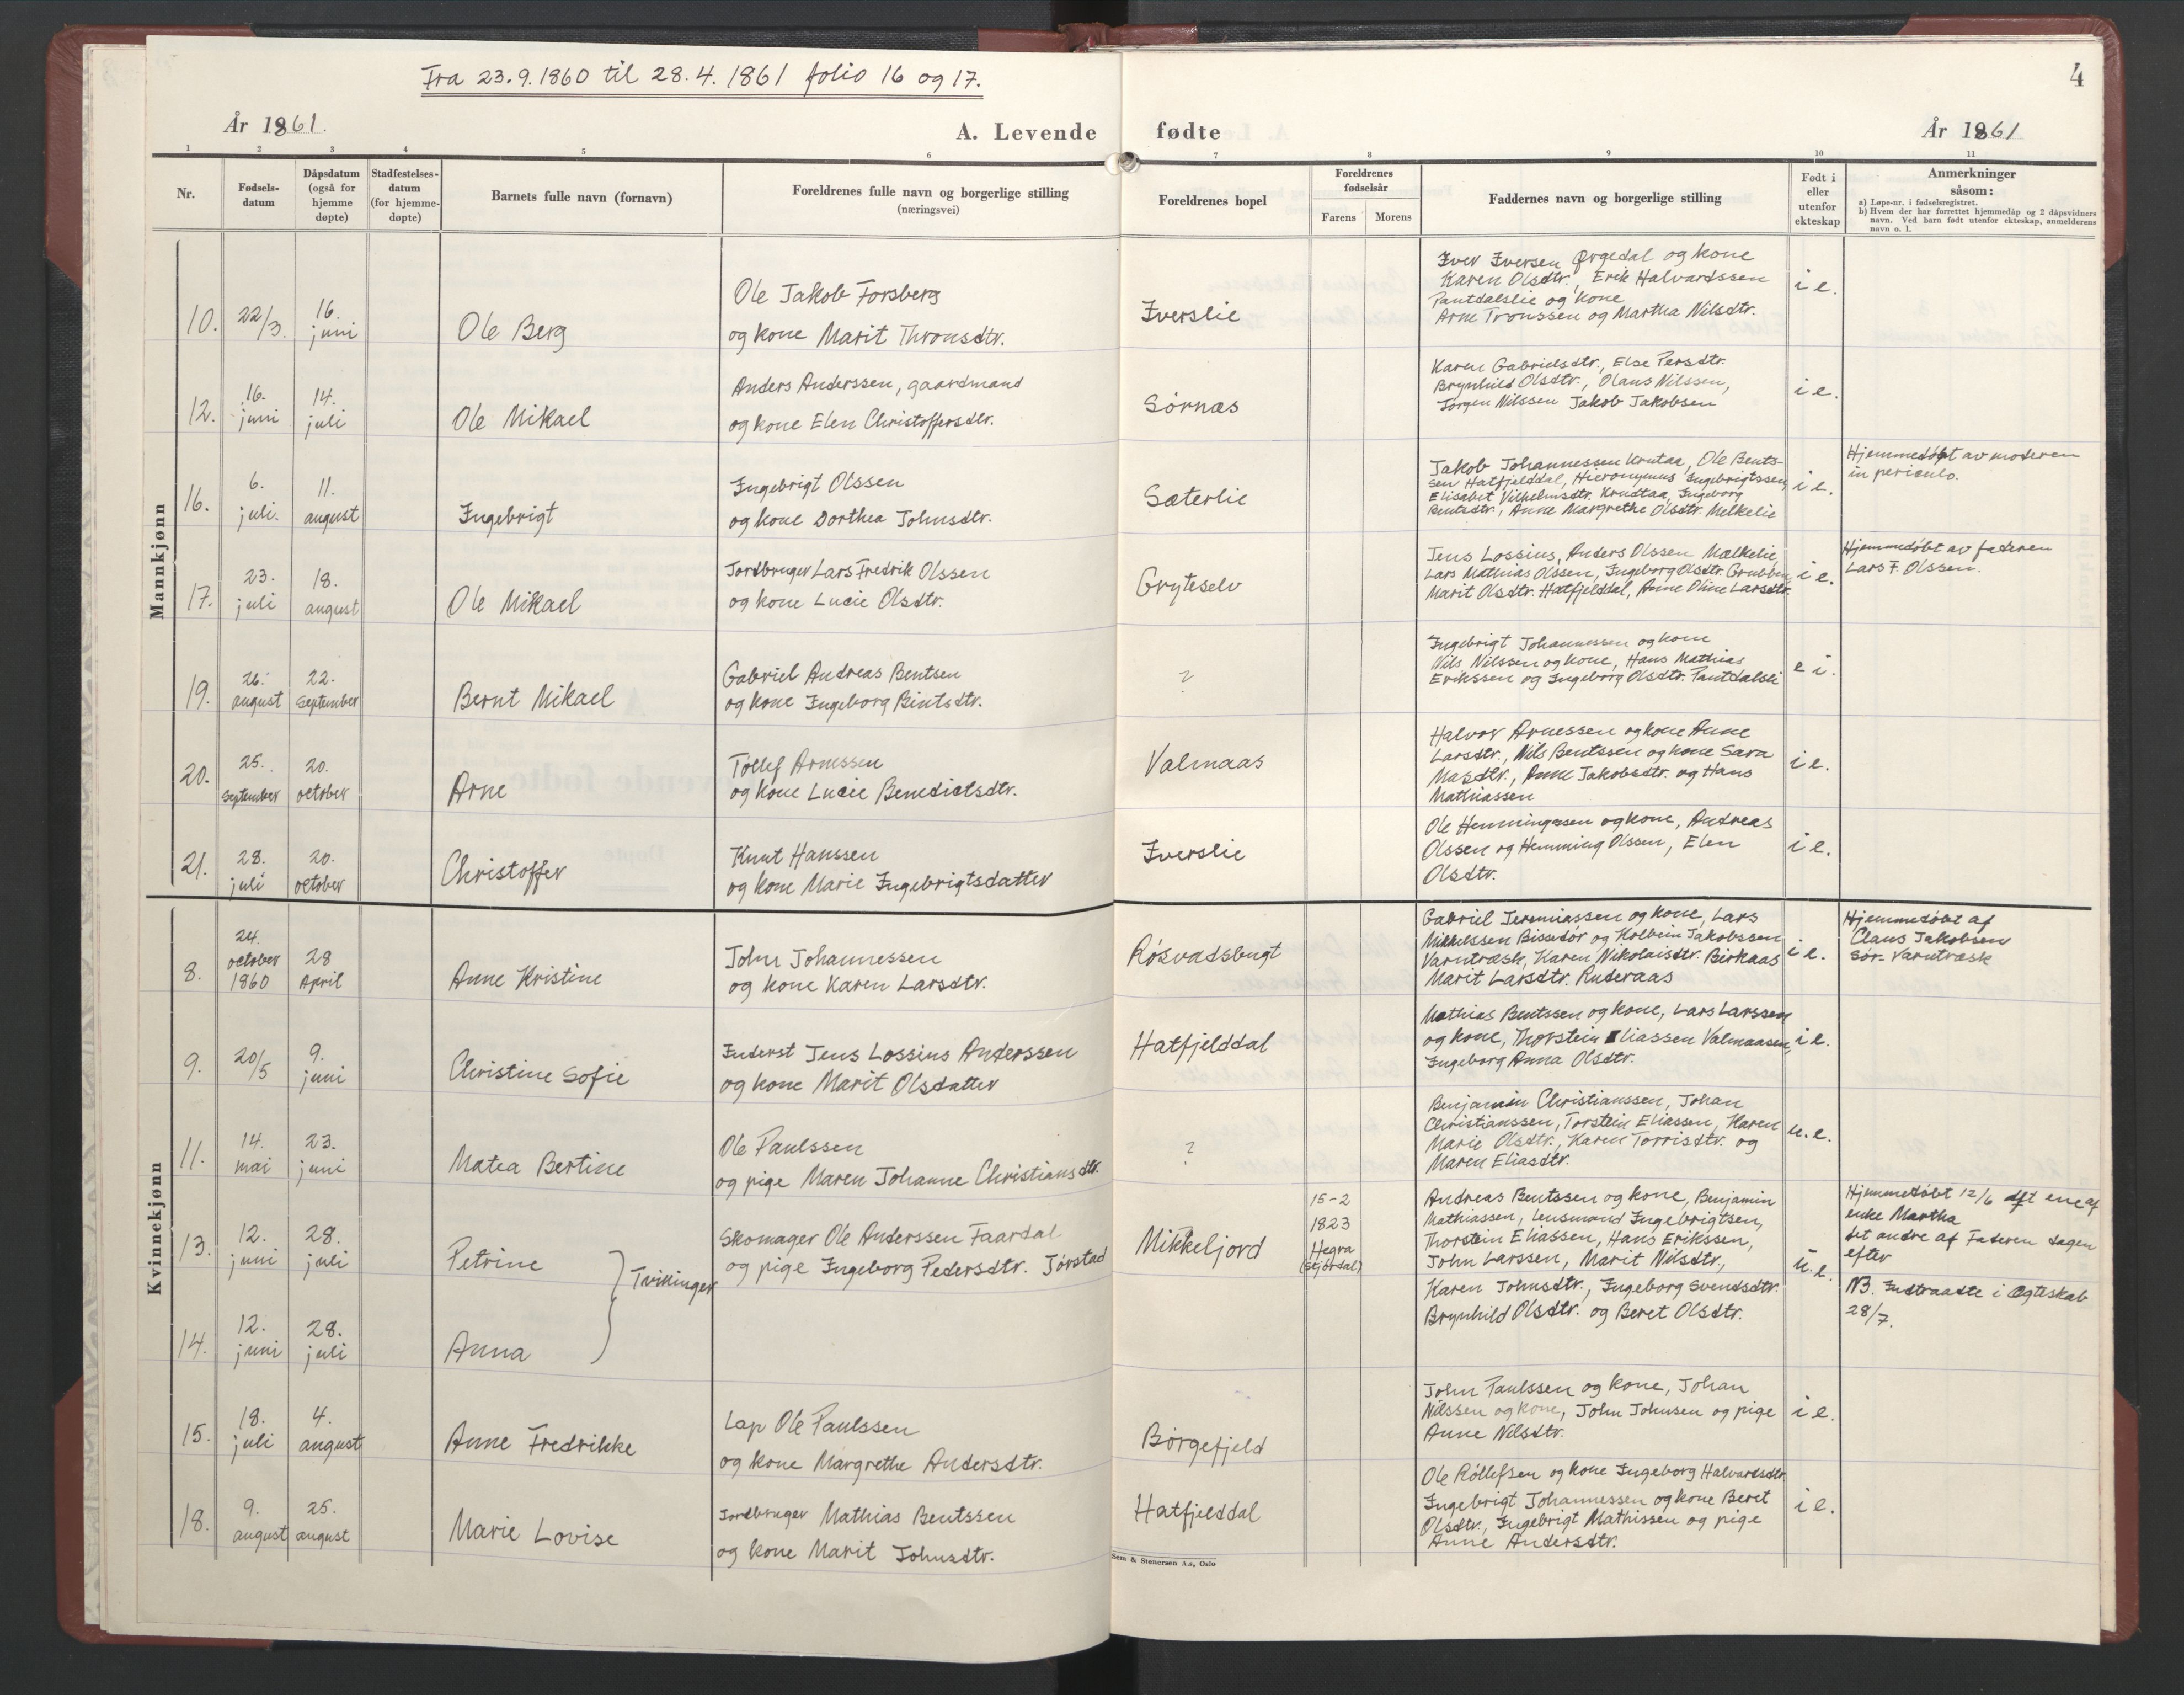 Fra 23.9.1860 til 28.4.1861 folio 16 og 17.
4
År 1861.
A. Levende fødte
År 1861
1 2 3 4 5 6 7 8 9 10 11
Nr.
Fødsels-
datum
Dåpsdatum
(også for
hjemme
døpte)
Stadfestelses-
datum
(for hjemme-
døpte)
Barnets fulle navn (fornavn)
Foreldrenes fulle navn og borgerlige stilling
(næringsvei)
Foreldrenes bopel
Foreldrenes
fødselsår
Farens Morens
Faddernes navn og borgerlige stilling
Født i
eller
utenfor
ekteskap
Anmerkninger
såsom:
a) Løpe-nr. i fødselsregistret.
b) Hvem der har forrettet hjemmedåp og 2 dåpsvidners
navn. Ved barn født utenfor ekteskap, anmelderens
navn o. l.
Mannkjønn
10.
22/3.
16.
juni
Ole Berg
Ole Jakob Forsberg
og kone Marit Thronsdtr.
Iverslie
Iver Iversen Ørgedal og kone
Karen Olsdtr., Erik Halvardssen
Pantdalslie og kone
Arne Tronssen og Martha Nilsdtr.
i e.
12.
16.
juni
14.
juli
Ole Mikael
Anders Anderssen, gaardmand
og kone Elen Christoffersdtr.
Sörnæs
Karen Gabrielsdtr., Else Persdtr.
Brynhild Olsdtr., Olaus Nilssen,
Jørgen Nilssen Jakob Jakobsen
i e.
16.
6.
juli.
11.
august
Ingebrigt
Ingebrigt Olssen
og kone Dorthea Johnsdtr.
Sæterlie
Jakob Johannessen Krutaa, Ole Bents-
sen Hatfjelddal, Hieronymus Ingebrigtssen,
Elisabet Vilhelmsdtr. Krudtaa, Ingeborg
Bentsdtr., Anne Margrethe Olsdtr. Melkelie
i e.
Hjemmedøbt av moderen
in periculo.
17.
23.
juli
18.
august
Ole Mikael
Jordbruger Lars Fredrik Olssen
og kone Lucie Olsdtr.
Gryteselv
Jens Lossius, Anders Olssen Mælkelie,
Lars Mathias Olssen, Ingeborg Olsdtr. Grubben
Marit Olsdtr. Hatfjelddal, Anne Oline Larsdtr.
i e.
Hjemmedøbt av faderen
Lars F. Olssen.
19.
26.
august
22.
September
Bernt Mikael
Gabriel Andreas Bentsen
og kone Ingeborg Bintsdtr.
?
Ingebrigt Johannessen og kone
Nils Nilssen og kone, Hans Mathias
Erikssen og Ingeborg Olsdtr. Pantdalsli
e i.
20.
25.
September
20.
october
Arne
Töllef Arnessen
og kone Lucie Benedictsdtr.
Valmaas
Halvor Arnessen og kone Anne
Larsdtr., Nils Bentssen og kone Sara
Masdtr., Anne Jakobsdtr. og Hans
Mathiassen
i e.
21.
28.
juli
20.
october
Christoffer
Knut Hanssen
og kone Marie Ingebrigtsdatter
Iverslie
Ole Henningssen og kone, Andreas
Olssen og Hemming Olssen, Elen
Olsdtr.
i e.
Kvinnekjønn
8.
24.
october
1860
28
April
Anne Kristine
John Johannessen
og kone Karen Larsdtr.
Røsvadsbugt
Gabriel Jeremiassen og kone, Lars
Mikkelssen Bissedør og Kolbein Jakobssen
Varntræsk, Karen Nikolaisdtr. Birkaas
Marit Larsdtr. Ruderaas
i e.
Hjemmedøbt af
Claus Jakobsen
Sør-Varntræsk
9.
20/5
9.
juni
Christine Sofie
Inderst Jens Lossius Anderssen
og kone Marit Olsdatter
Hatfjelddal
Mathias Bentssen og kone, Lars Larssen
og kone, Thorstein Eliassen Valmaasen,
Ingeborg Anna Olsdtr.
i e.
11.
14.
mai
23.
juni
Matea Bertine
Ole Paulssen
og pige Maren Johanne Christiansdtr.
?
Benjamin Christianssen, Johan
Christianssen, Torstein Eliassen, Karen
Marie Olsdtr., Karen Torrisdtr. og
Maren Eliasdtr.
u.e.
13.
12.
juni
28.
juli
Petrine
Tvillinger
Skomager Ole Anderssen Faardal
og pige Ingeborg Pedersdtr. Jørstad
Mikkeljord
15-2
1823
Hegra
(Stjørdal)
Andreas Bentssen og kone, Benjamin
Mathiassen, Lensmand Ingebrigtsen,
Thorstein Eliassen, Hans Erikssen,
John Larssen, Marit Nilsdtr.,
Karen Johnsdtr., Ingeborg Svendsdtr.
Brynhild Olsdtr. og Beret Olsdtr.
u.e.
Hjemmedøbt 12/6 det ene af
enke Martha
det andre af Faderen dagen
efter
NB. Indtraadte i Ægteskab
28/7.
14.
12.
juni
28.
juli
Anna
15.
18.
juli
4.
august
Anne Fredrikke
Lap Ole Paulssen
og kone Margrethe Andersdtr.
Børgefjeld
John Paulssen og kone, Johan
Nilssen og kone, John Johnsen og pige
Anne Nilsdtr.
i e.
18.
9.
august
25.
august
Marie Lovise
Jordbruger Mathias Bentssen
og kone Marit Johnsdtr.
Hatfjelddal
Ole Röllefsen og kone Ingeborg Halvardsdtr.
Ingebrigt Johannessen og kone Beret
Olsdtr., Ingebrigt Mathissen og pige
Anne Andersdtr.
i e.
Sem & Stenersen A.s, Oslo